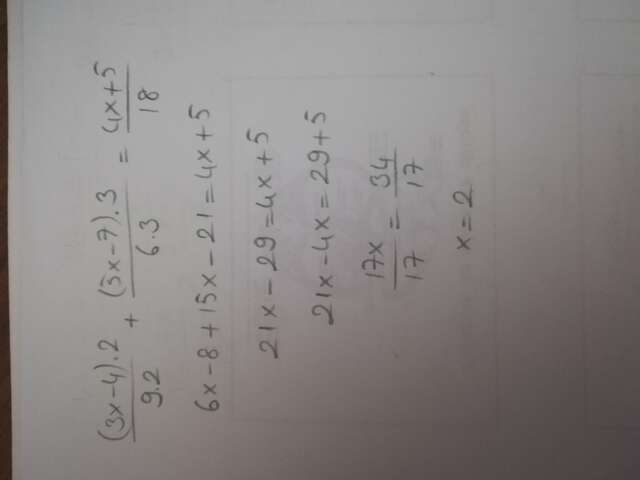 (3x-4).2/9.2 + (5x-7).3/6.3 = 4x+5/18
6x-8+15x-21=4x+5
21x-29=4x+5
21x-4x=29+5
17x/17 = 34/17
x=2